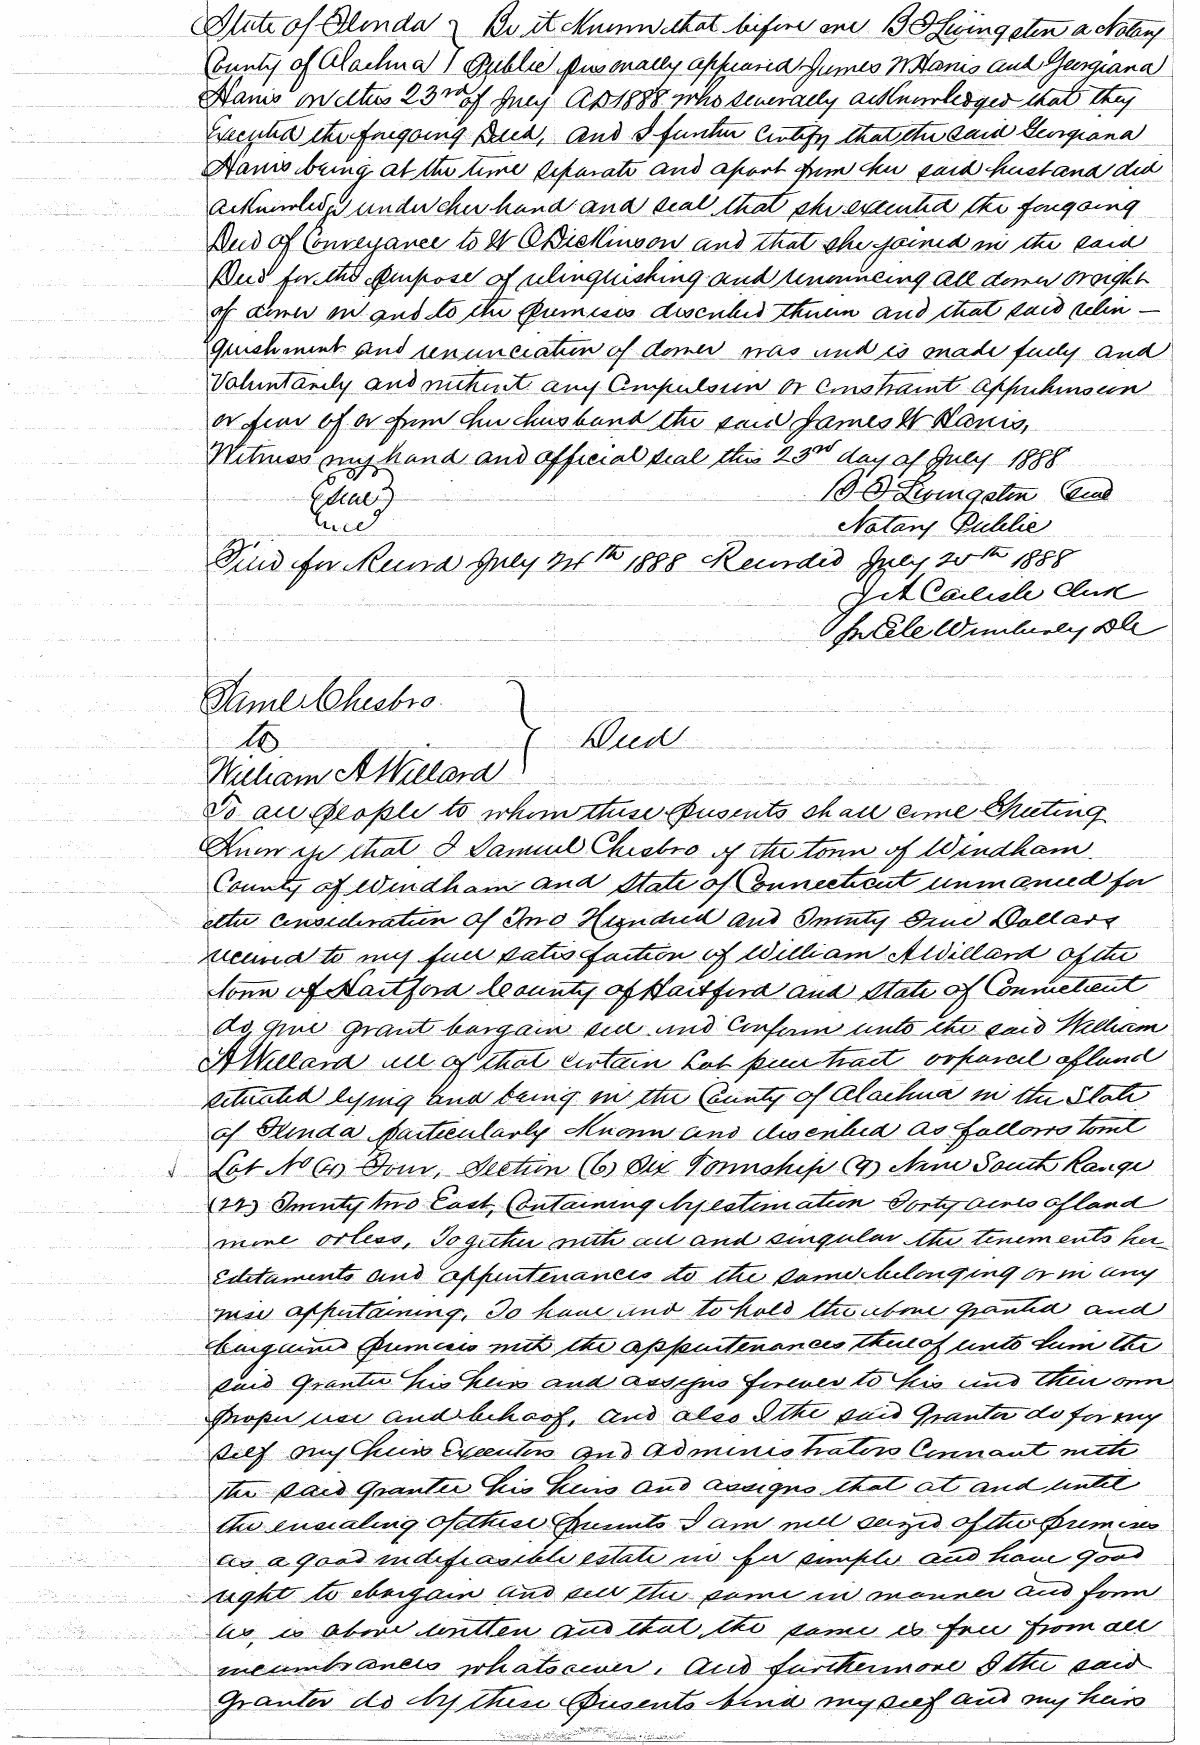 State of Florida } Be it Known that before me B F Livingston a Notary
County of Alachua } Public personally appeared James W Harris and Georgiana
Harris on this 23rd of July AD 1888 who severally acknowledged that they
Executed the foregoing Deed, and I further Certify that the said Georgiana
Harris being at the time separate and apart from her said husband did
acknowledge under her hand and seal that she executed the foregoing
Deed of Conveyance to W C Dickinson and that she joined in the said
Deed for the purpose of relinquishing and renouncing all dower or right
of dower in and to the premises described therein and that said relin-
quishment and renunciation of dower was and is made freely and
Voluntarily and without any Compulsion or constraint apprehension
or fear of or from her husband the said James W Harris,
Witness my hand and official seal this 23rd day of July 1888
B F Livingston Seal
Seal
Notary Public
Filed for Record July 24th 1888 Recorded July 25th 1888
J A Carlisle Clerk
Wimberly DC
Saml Chesbro
to } Deed
William A Willard
To all People to whom these Presents shall come Greeting
Know ye that I Samuel Chesbro of the town of Windham
County of Windham and State of Connecticut unmarried for
the consideration of Two Hundred and Twenty Five Dollars
received to my full satisfaction of William A Willard of the
town of Hartford County of Hartford and State of Connecticut
do give grant bargain sell and Confirm unto the said William
A Willard all of that certain Lot piece tract or parcel of land
situated lying and being in the County of Alachua in the State
of Florida particularly Known and described as follows towit
Lot No (4) Four, Section (6) Six Township (9) Nine South Range
(22) Twenty two East, Containing by estimation Forty acres of land
more or less, Together with all and singular the tenements her-
editaments and appurtenances to the same belonging or in any
wise appertaining, To have and to hold the above granted and
bargained premises with the appurtenances thereof unto him the
said Grantee his heirs and assigns forever to his and their own
proper use and behoof, and also I the said Grantor do for my
self my heirs Executors and administrators Covenant with
the said Grantee his heirs and assigns that at and until
the ensealing of these Presents I am well seized of the premises
as a good indefeasible estate in fee simple and have good
right to bargain and sell the same in manner and form
as is above written and that the same is free from all
incumbrances whatsoever, And furthermore I the said
Grantor do by these Presents bind myself and my heirs